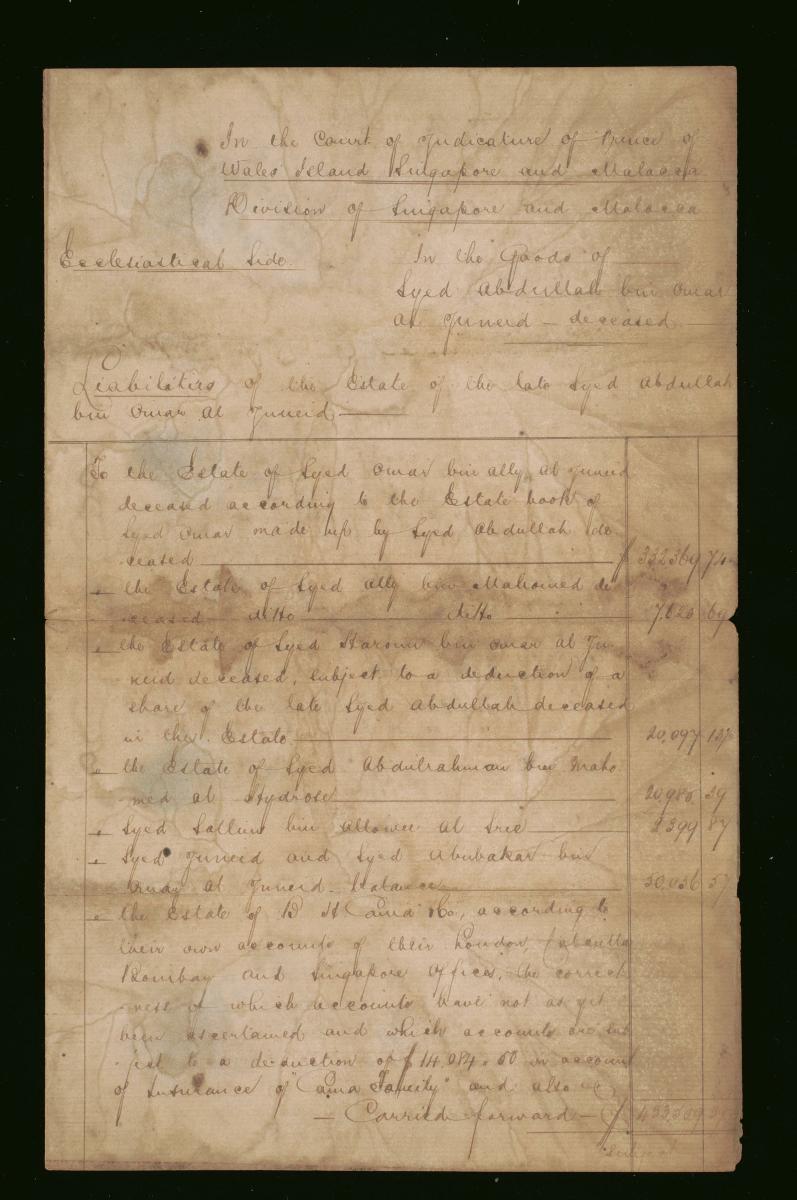 In the Court of Judicature of Prince of
Wales Island Singapore and Malacca
Division of Singapore and Malacca
Ecclesiastical Side.
In the Goods of
Syed Abdullah bin Omar
Al Juneid — deceased
Liabilities of the Estate of the late Syed Abdullah
bin Omar Al Juneid
To the Estate of Syed Omar bin Ally Al Juneid
deceased according to the Estate book of
Syed Omar made up by Syed Abdullah de-
ceased $ 332,369 74
" the Estate of Syed Ally bin Mahomed de-
ceased ditto ditto 69
" the Estate of Syed Haroun bin Omar Al Ju-
neid deceased, subject to a deduction of a
share of the late Syed Abdullah deceased
in the Estate 20,097
" the Estate of Syed Abdulrahman bin Maho-
med al Hydrose 29
" Syed Sallim bin al 2,399 87
" Syed Juneid and Syed Abubakar bin
Omar Al Juneid - Balance 50,036 57
" the Estate of D H Cama & Co, according to
their own accounts of their London, Calcutta
Bombay and Singapore Offices, the correct-
ness of which accounts have not as yet
been ascertained and which accounts are sub-
ject to a deduction of $14,084.60 in account
of Insurance of "Cama Family" and also
— Carried forward — $
Subject